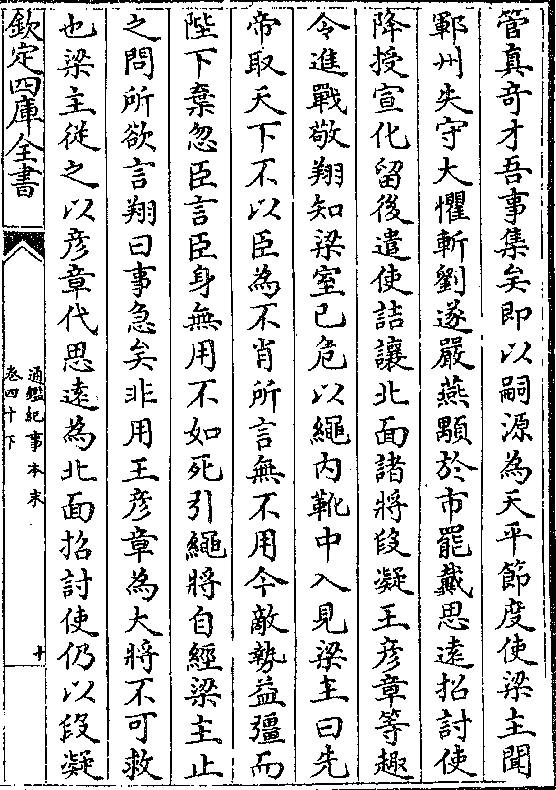 管真奇才吾事集矣即以嗣源為天平節度使梁主聞
鄆州失守大懼斬劉遂嚴燕顒於市罷戴思遠招討使
降授宣化留後遣使詰讓北面諸將段凝王彥章等趣
令進戰敬翔知梁室已危以繩内靴中入見梁主曰先
帝取天下不以臣為不肖所言無不用今敵勢益彊而
陛下棄忽臣言臣身無用不如死引繩將自經梁主止
之問所欲言翔曰事急矣非用王彥章為大將不可救
也梁主從之以彥章代思遠為北面招討使仍以段凝
欽定四庫全書
通鑑紀事本末
卷四十下
十